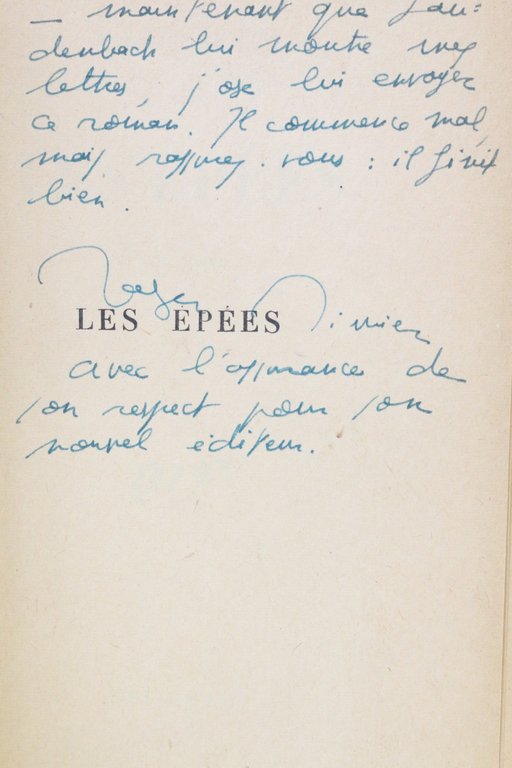 — maintenant que Lau=
denbach lui montre mes
lettres, j'ose lui envoyer
ce roman. Il commence mal,
mais rassurez-vous : il finit
bien.
Roger Nimier
LES ÉPÉES
avec l'assurance de
son respect pour son
nouvel éditeur.